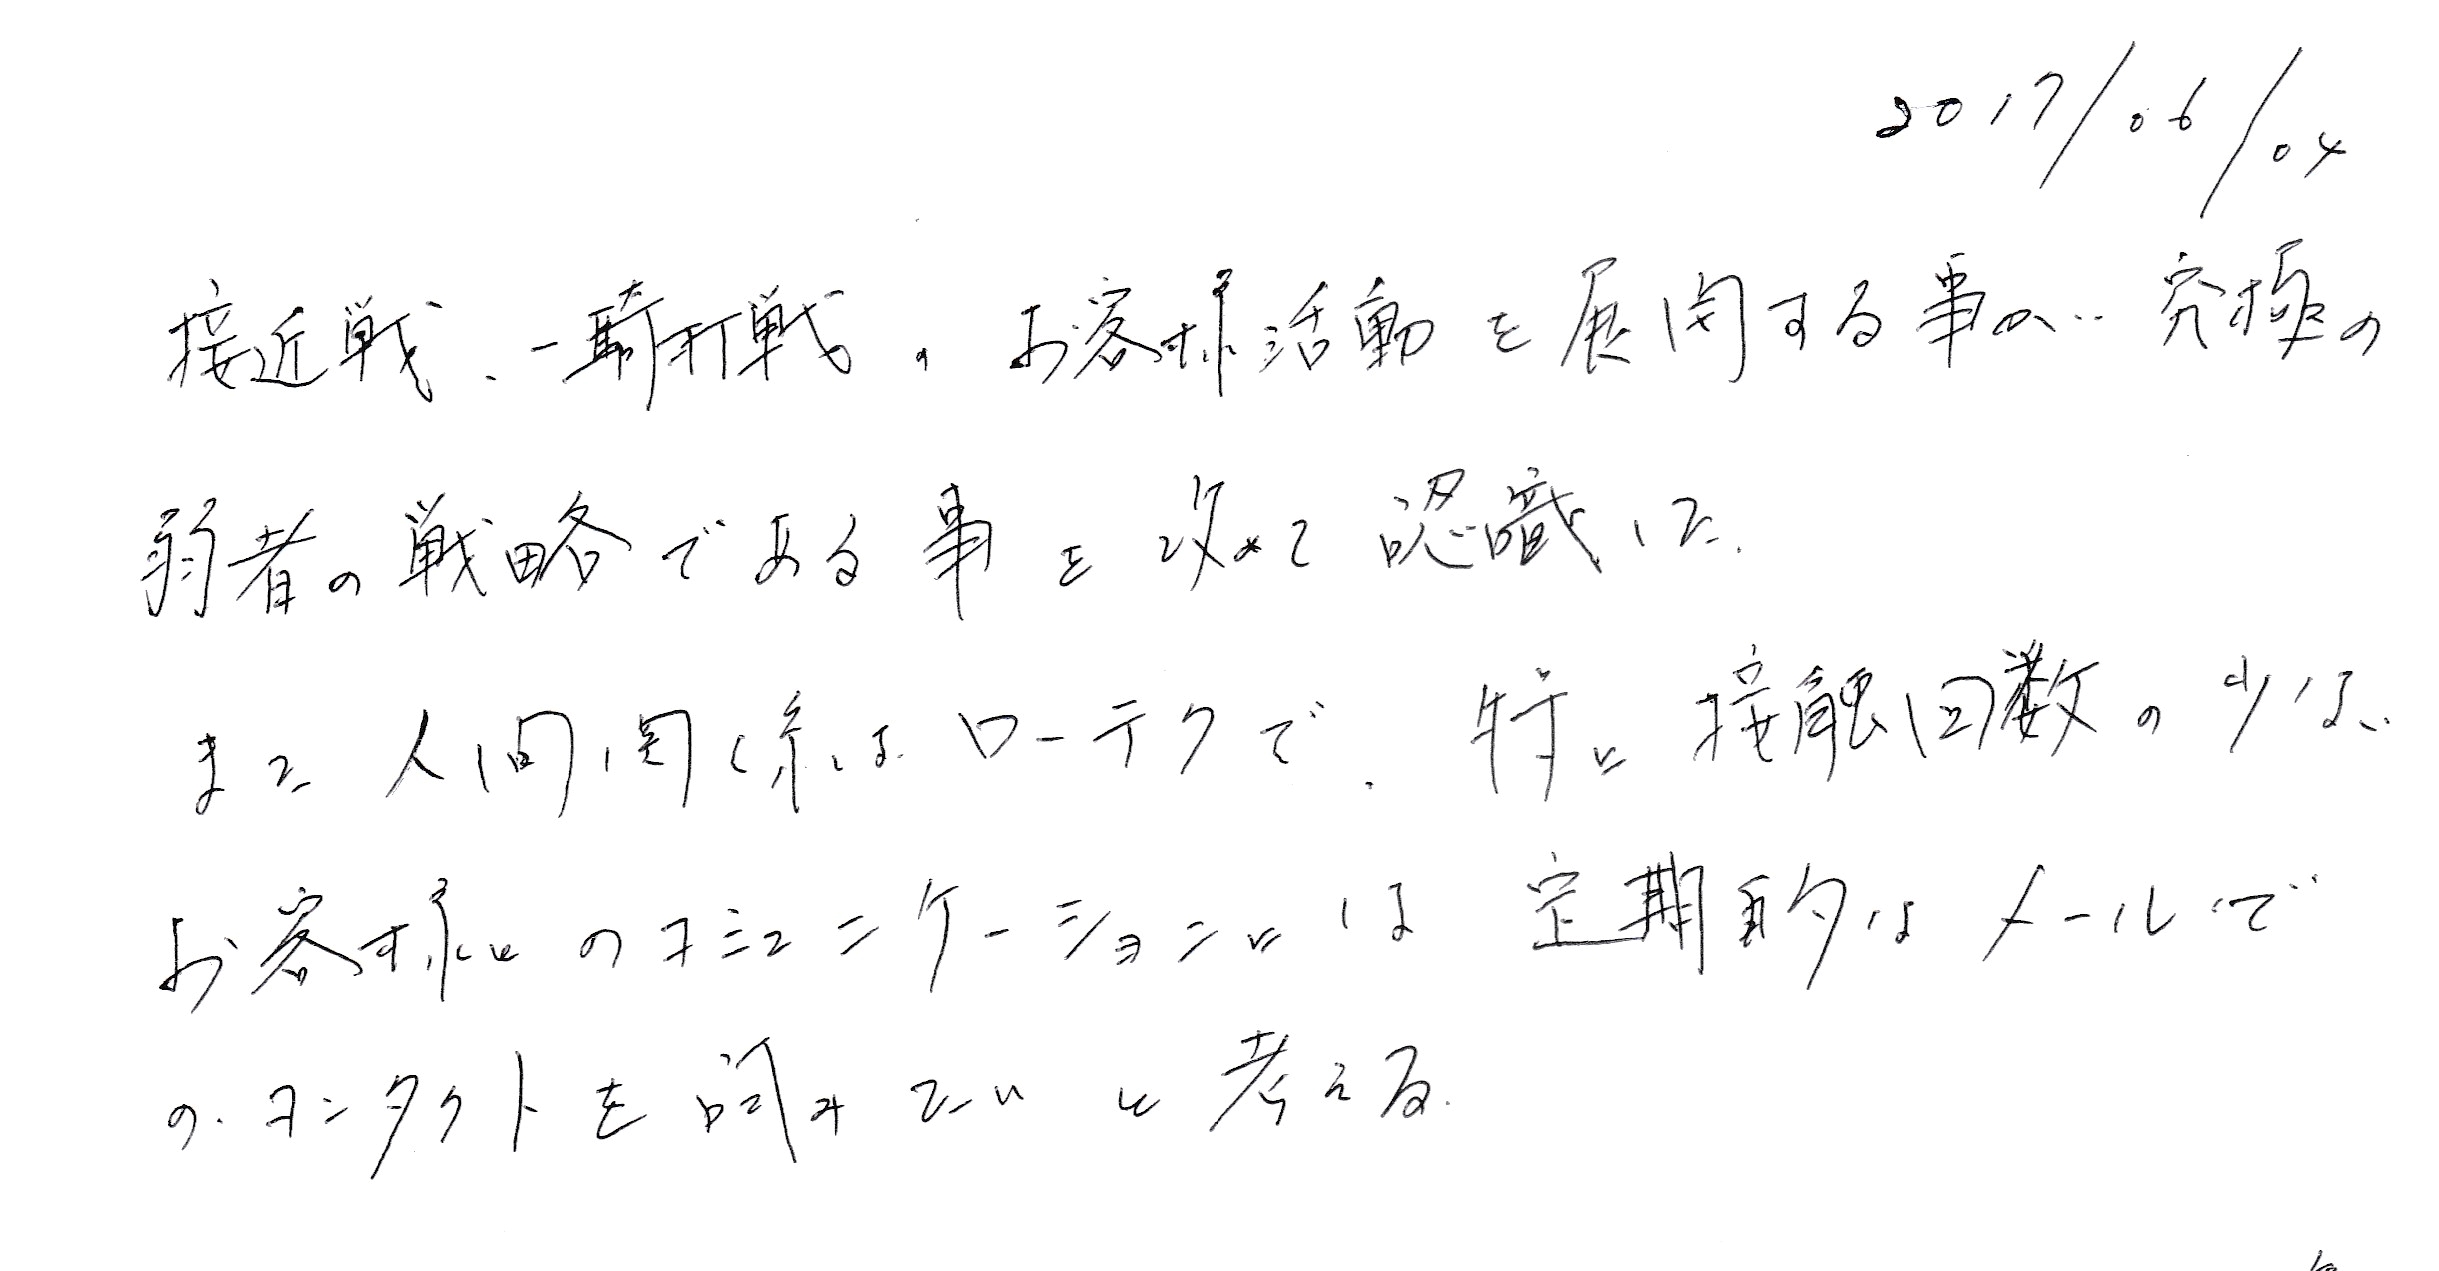 2017/06/04
接近戦、一騎打戦、お客様活動を展開する事が究極の
弱者の戦略である事を改めて認識した。
また人間関係はローテクで、特に接触回数の少ない
お客様とのコミュニケーションには定期的なメールで
のコンタクトを試みたいと考える。